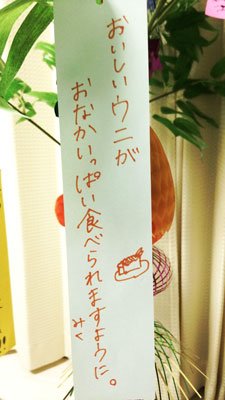 おいしいウニが
おなかいっぱい食べられますように。
みく